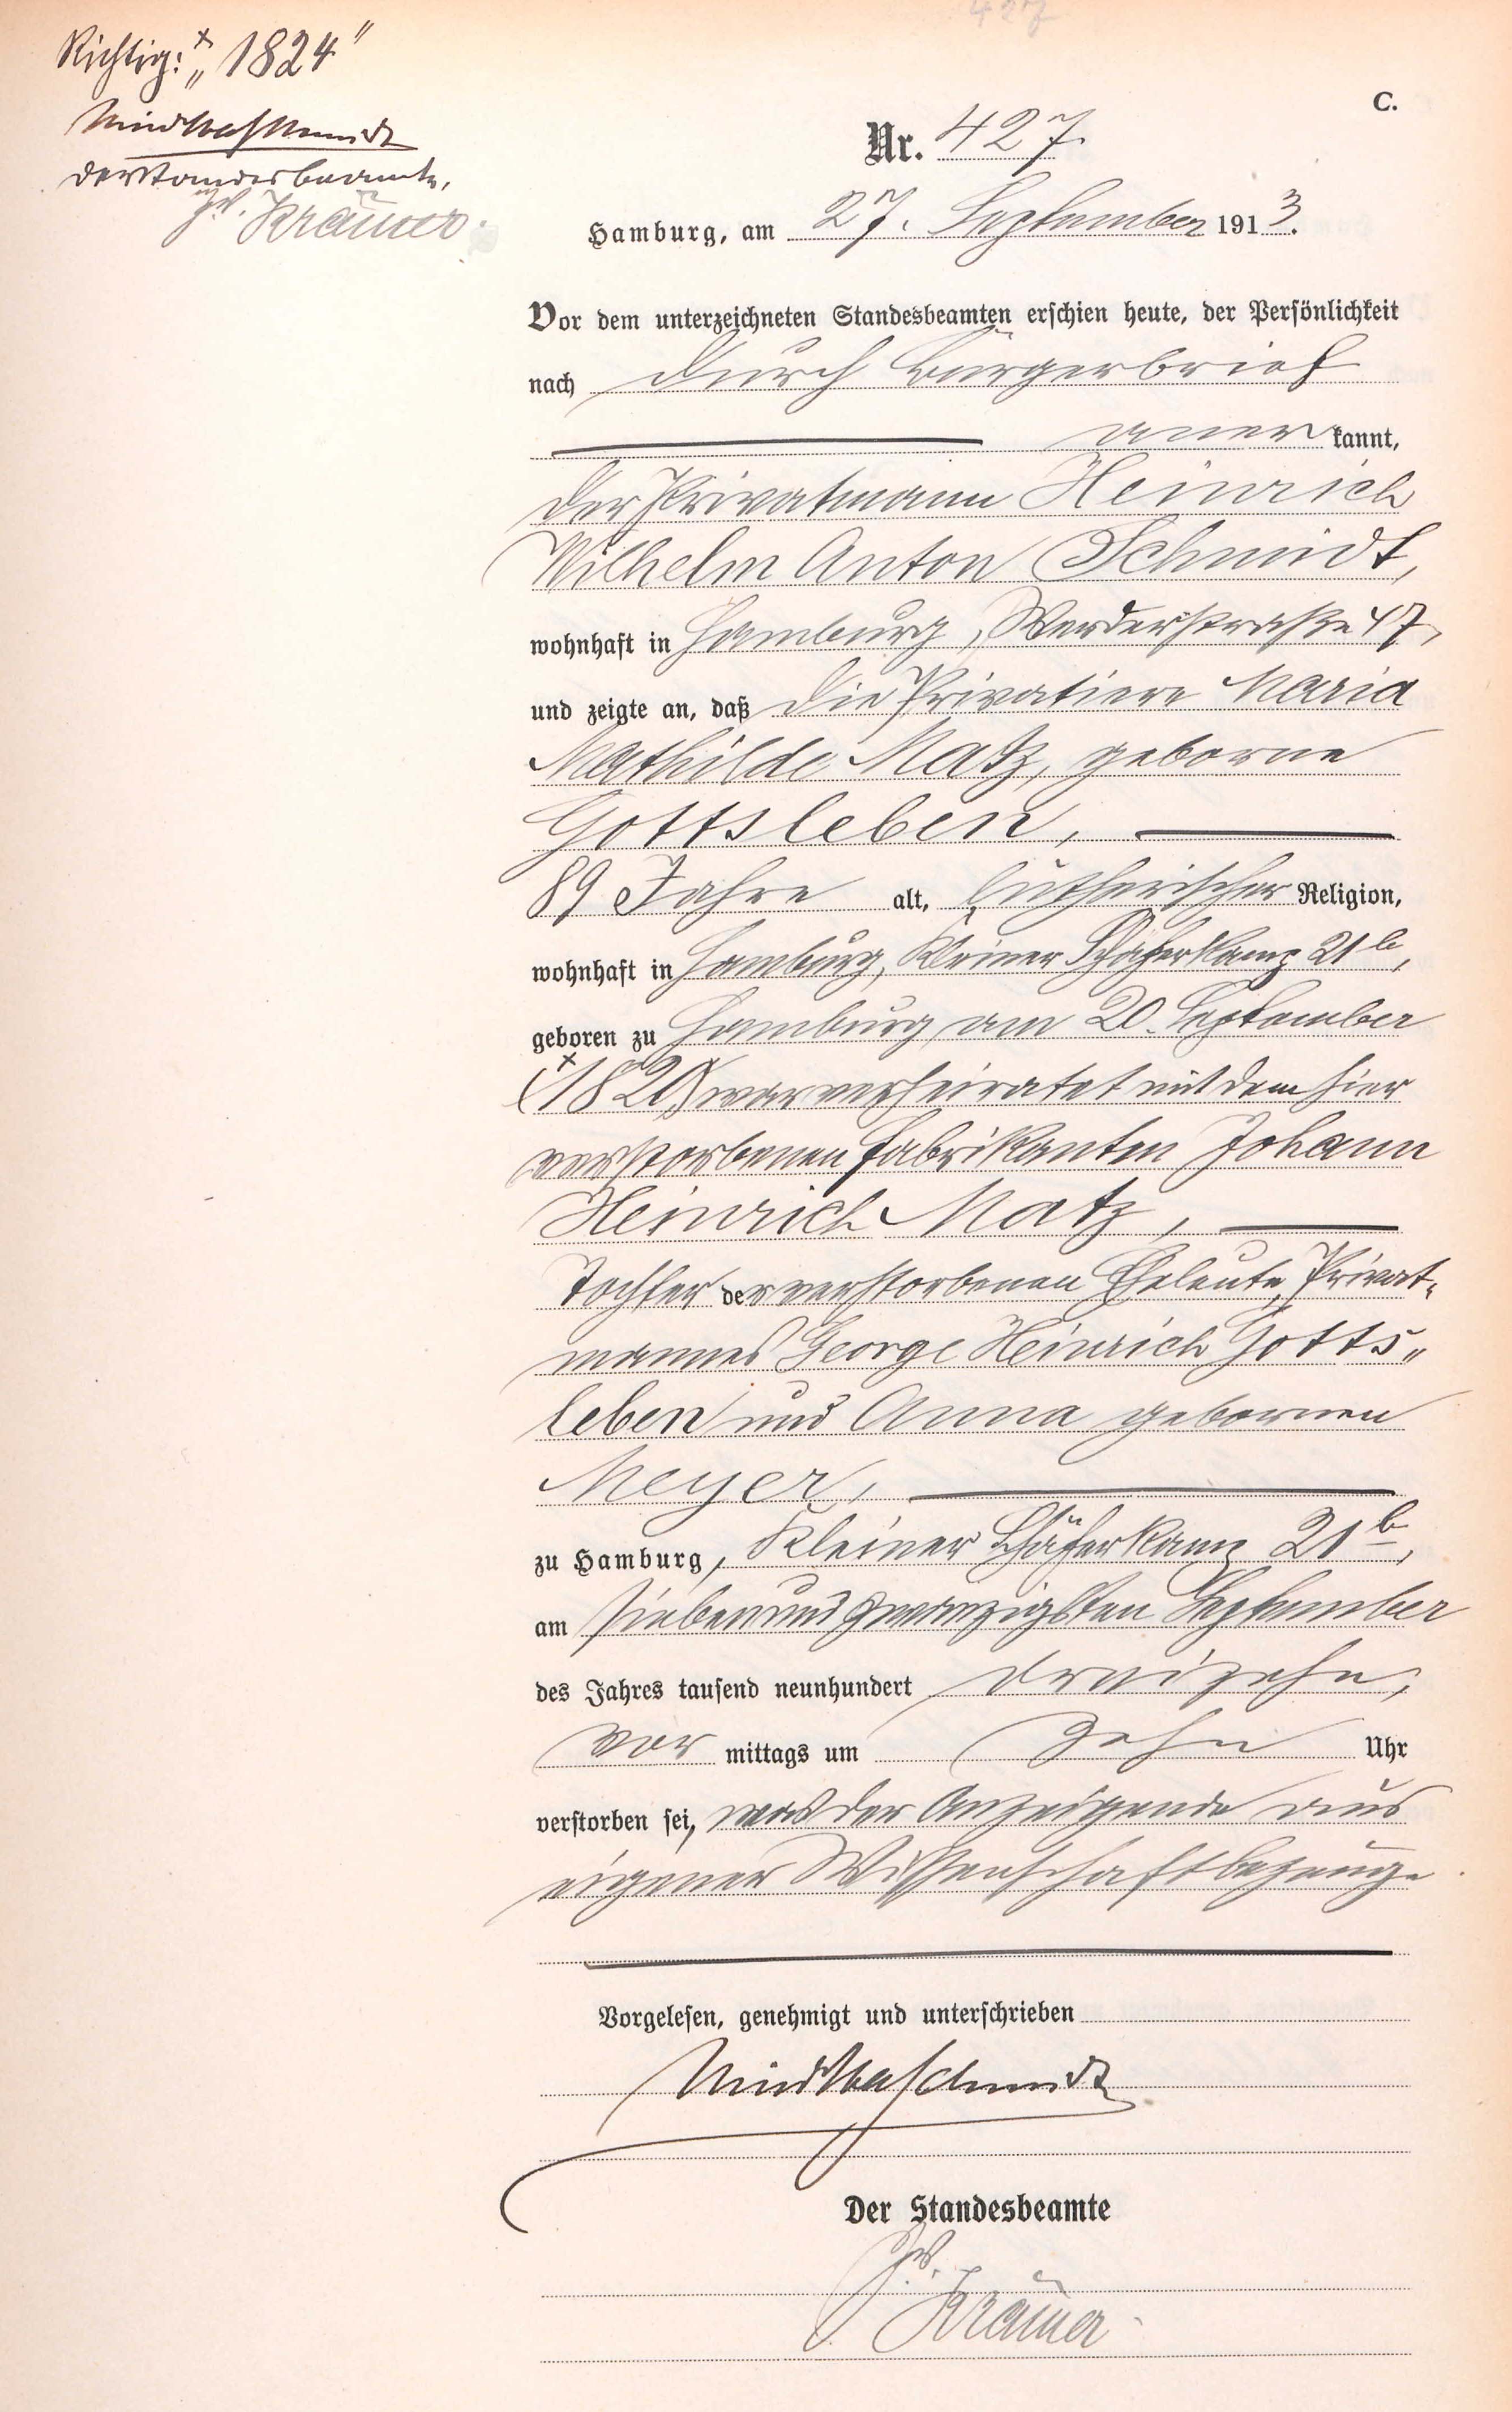 427
Richtig: x „1824"
Der Standesbeamte,
Krämer.
C.
Nr. 427.
Hamburg, am 27. September 1913.
Vor dem unterzeichneten Standesbeamten erschien heute, der Persönlichkeit
nach durch Bürgerbrief
anerkannt,
der Privatmann Heinrich
Wilhelm Anton Schmidt,
wohnhaft in Hamburg, Werderstraße 47,
und zeigte an, daß die Privatiere Maria
Mathilde Matz, geborne
Gottsleben,
89 Jahre alt, lutherischer Religion,
wohnhaft in Hamburg, Kleiner Schäferkamp 21b,
geboren zu Hamburg am 20. September
x (1820) war verheiratet mit dem hier
verstorbenen Fabrikanten Johann
Heinrich Matz,
Tochter der verstorbenen Eheleute, Privat-
mannes George Heinrich Gotts„
leben und Anna gebornen
Meyer,
zu Hamburg, Kleiner Schäferkamp 21b,
am siebenundzwanzigsten September
des Jahres tausend neunhundert dreizehn,
vor mittags um zehn Uhr
verstorben sei, was der Anzeigende aus
eigener Wissenschaft bezeuge.
Vorgelesen, genehmigt und unterschrieben
Schmidt
Der Standesbeamte
Krämer